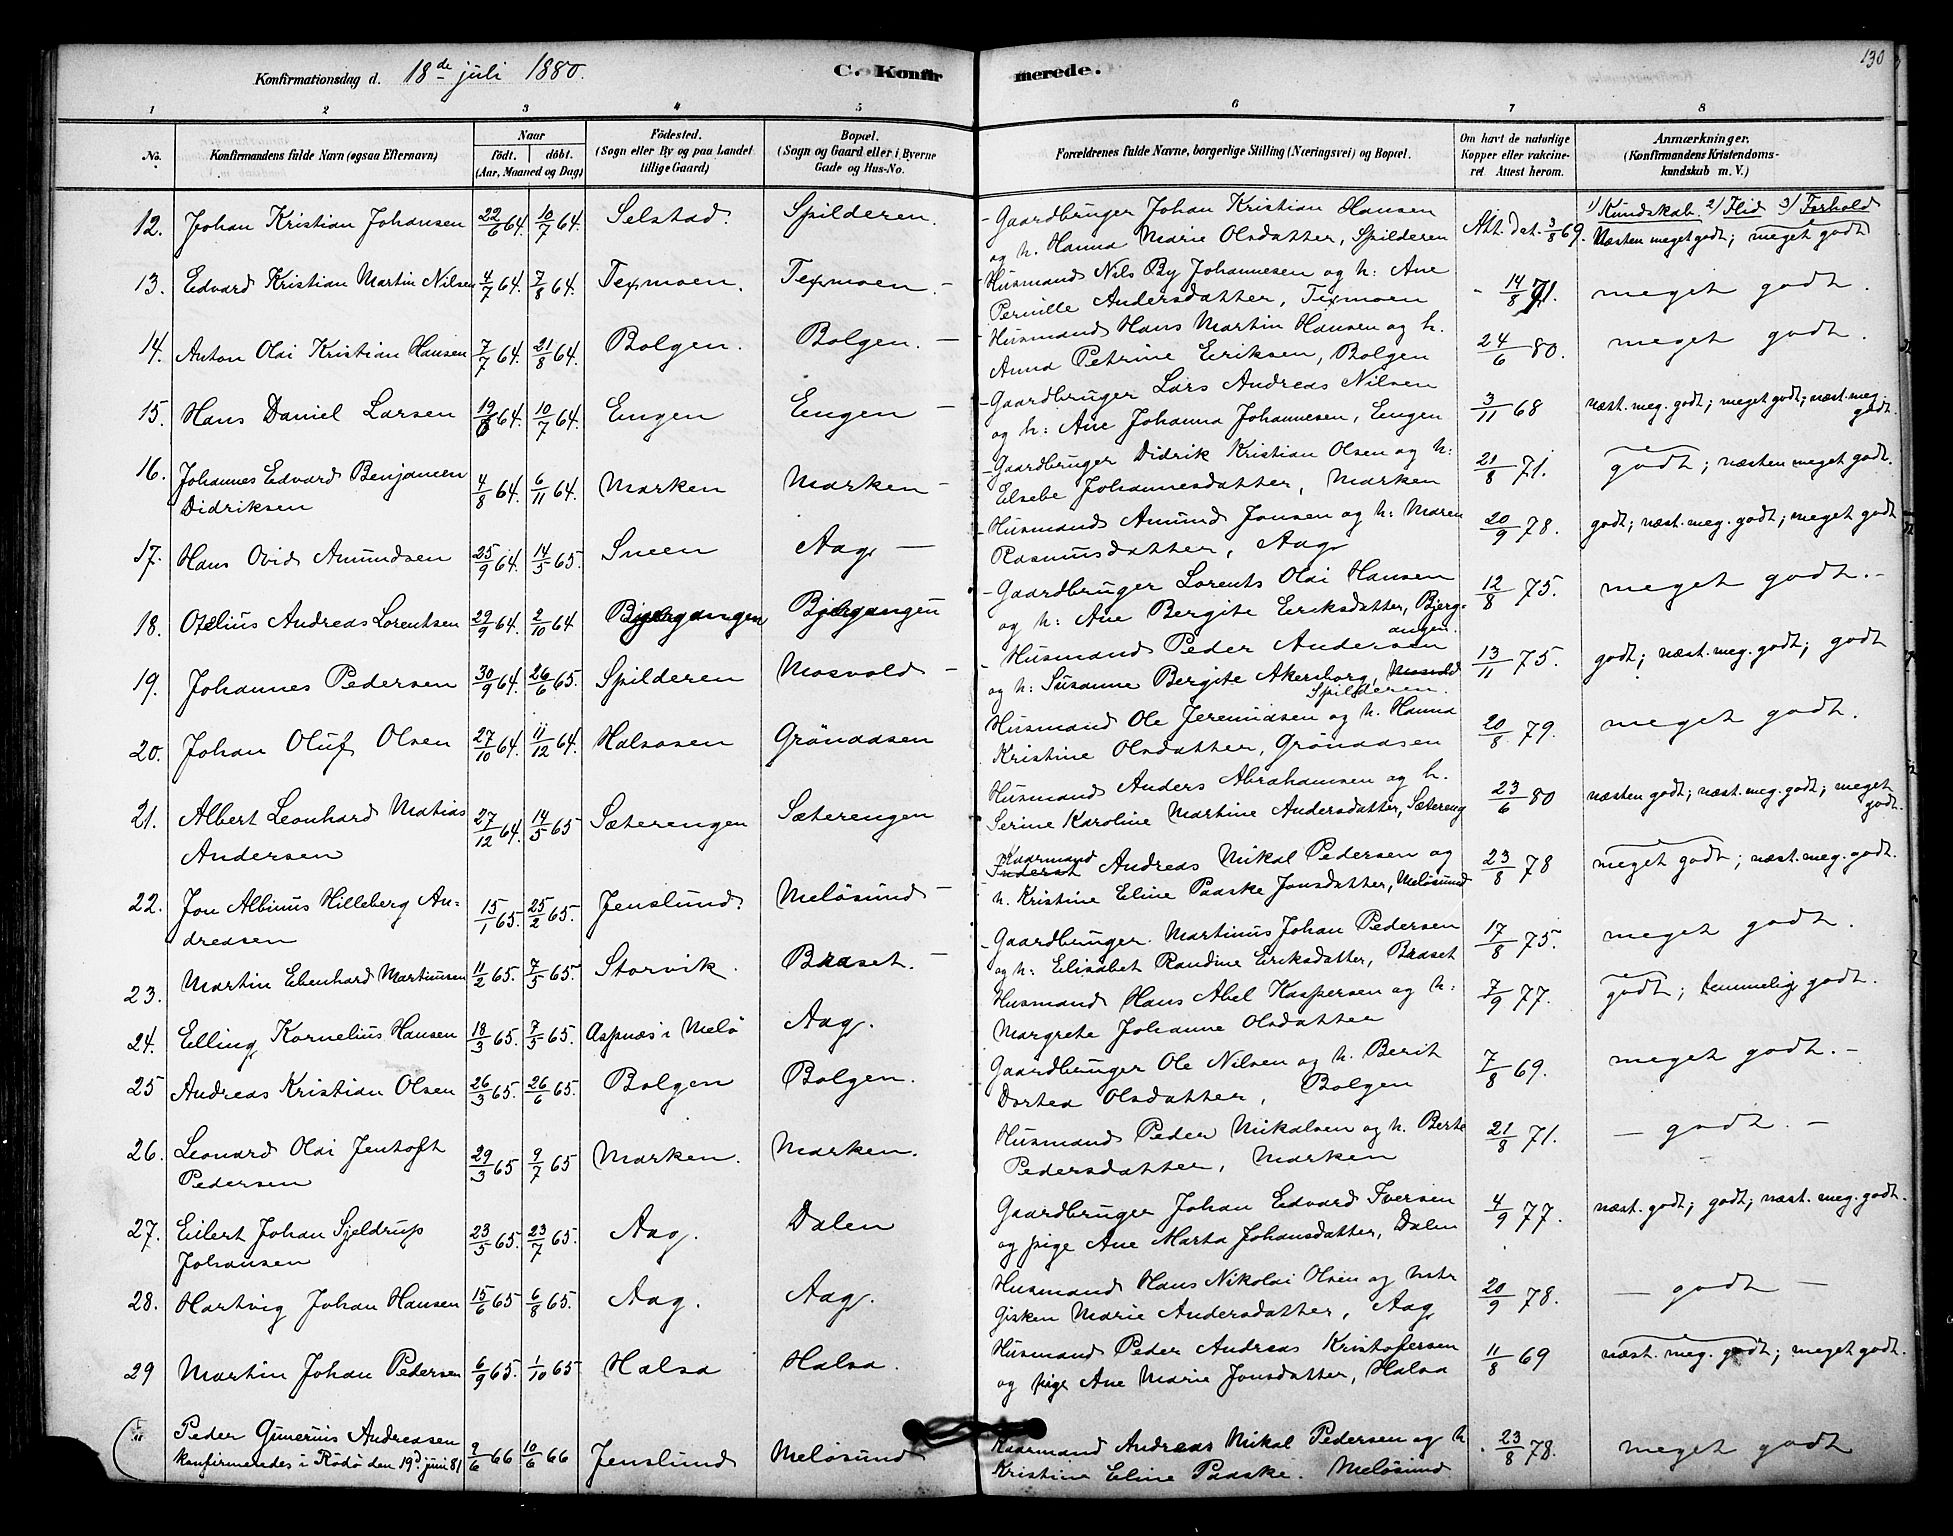 Konfirmationsdag d. 18de juli 1880. C. Konfirmerede. 130
1 2 3 4 5 6 7 8
No. Konfirmandens fulde Navn (ogsaa Efternavn) Naar födt. döbt. (Aar, Maaned og Dag) Födested. (Sogn eller By og paa Landet tillige Gaard) Bopæl. (Sogn og Gaard eller i Byerne Gade og Hus-No. Forældrenes fulde Navne, borgerlige Stilling (Næringsvei) og Bopæl. Om havt de naturlige Kopper eller vakcineret. Attest herom. Anmærkninger. (Konfirmandens Kristendomskundskab m. V.)
1) Kundskab. 2) Flid 3) Forhold
12. Johan Kristian Johansen 22/6 64. 10/7 64. Selstad. Spilderen. - Gaardbruger Johan Kristian Hansen
og h. Hanna Marie Olsdatter, Spilderen Att. dat. 3/8 69. Næsten meget godt; meget godt
13. Edvard Kristian Martin Nilsen 4/7 64. 7/8 64. Texmoen. Texmoen. - - Husmand Nils By Johannesen og h: Ane
Pernille Andersdatter, Texmoen - 14/8 71. meget godt.
14. Anton Olai Kristian Hansen 7/7 64. 21/8 64. Bolgen. Bolgen. - - Husmand Hans Martin Hansen og h.
Anna Petrine Eriksen, Bolgen 24/6 80. meget godt.
15. Hans Daniel Larsen 19/6 64. 10/7 64. Engen Engen - - Gaardbruger Lars Andreas Nilsen
og h: Ane Johanna Johannesen, Engen 3/11 68 næst. meg. godt; meget godt; næst. meg.
godt.
16. Johannes Edvard Benjamen
Didriksen 4/8 64. 6/11 64. Marken Marken - - Gaardbruger Didrik Kristian Olsen og h:
Elsebe Johannesdatter, Marken 21/8 71. godt; næsten meget godt.
17. Hans Ovid Amundsen 25/9 64. 14/5 65. Sneen Aag - - Husmand Amund Jonsen og h: Maren
Rasmusdatter, Aag 20/9 78. godt; næst. meg. godt; meget godt
18. Otelius Andreas Lorentsen 29/9 64. 2/10 64 Bjergangen Bjergangen - Gaardbruger Lorents Olai Hansen
og h: Ane Bergite Eriksdatter, Bjerg-
angen. 12/8 75. meget godt. -
19. Johannes Pedersen 30/9 64. 26/6 65. Spilderen Mosvold - - Husmand Peder Andersen
og h: Susanne Bergite Akersborg, Mosvold
Spilderen. 13/11 75. godt; næst. meg. godt; godt
20. Johan Oluf Olsen 27/10 64. 11/12 64. Halsosen Grönaasen Husmand Ole Jeremiasen og h. Hanna
Kristine Olsdatter, Grönaasen 20/8 79. meget godt.
21. Albert Leonhard Matias
Andersen 27/12 64. 14/5 65 Sæterengen Sæterengen Husmand Anders Abrahamsen og h.
Serine Karoline Martine Andersdatter, Sætereng 23/6 80 næsten godt; næst. meg. godt; meget
godt.
22. Jon Albinus Hilleberg An-
dreasen 15/1 65. 25/2 65. Jenslund. Melösund - Kaarmand
Inderst Andreas Mikal Pedersen og
h. Kristine Eline Paaske Jonsdatter, Melösund 23/8 78 meget godt; næst. meg. godt.
23. Martin Ebenhard Martinusen 11/2 65. 7/5 65. Storvik. Braset. - - Gaardbruger Martinus Johan Pedersen
og h: Elisabet Randine Eriksdatter, Braset 17/8 75. meget godt.
24. Elling Kornelius Hansen 18/3 65. 7/5 65. Aspnæs i Melö Aag. Husmand Hans Abel Kaspersen og h:
Margrete Johanne Olsdatter 7/9 77. godt; temmelig godt.
25 Andreas Kristian Olsen 26/3 65. 26/6 65. Bolgen Bolgen. Gaardbruger Ole Nilsen og h. Berit
Dortea Olsdatter, Bolgen 7/8 69. meget godt. -
26. Leonard Olai Jentoft
Pedersen 29/3 65 9/7 65 Marken. Marken. Husmand Peder Mikalsen og h. Berte
Pedersdatter, Marken 21/8 71. - godt. -
27. Eilert Johan Sjeldrup
Johansen 23/5 65. 23/7 65. Aag. Dalen Gaardbruger Johan Edvard Iversen
og pige Ane Marta Johansdatter, Dalen 4/9 77. næst. godt; godt; næst. meg. godt.
28. Hartvig Johan Hansen 15/6 65 6/8 65. Aag. Aag. Husmand Hans Nikolai Olsen og hstr
Gisken Marie Andersdatter, Aag 20/9 78. - godt -
29 Martin Johan Pedersen 6/9 65. 1/10 65 Halsa Halsa. Husmand Peder Andreas Kristofersen
og pige Ane Marie Jonsdatter, Halsa 11/8 69 næst. meg. godt; meget godt.
Peder Gunerius Andreasen
konfirmeredes i Rödö den 19d juni 81 9/6 66 10/6 66 Jenslund Melösund Kaarmand Andreas Mikal Pedersen og h
Kristine Eline Paaske. Melösund 23/8 78. meget godt